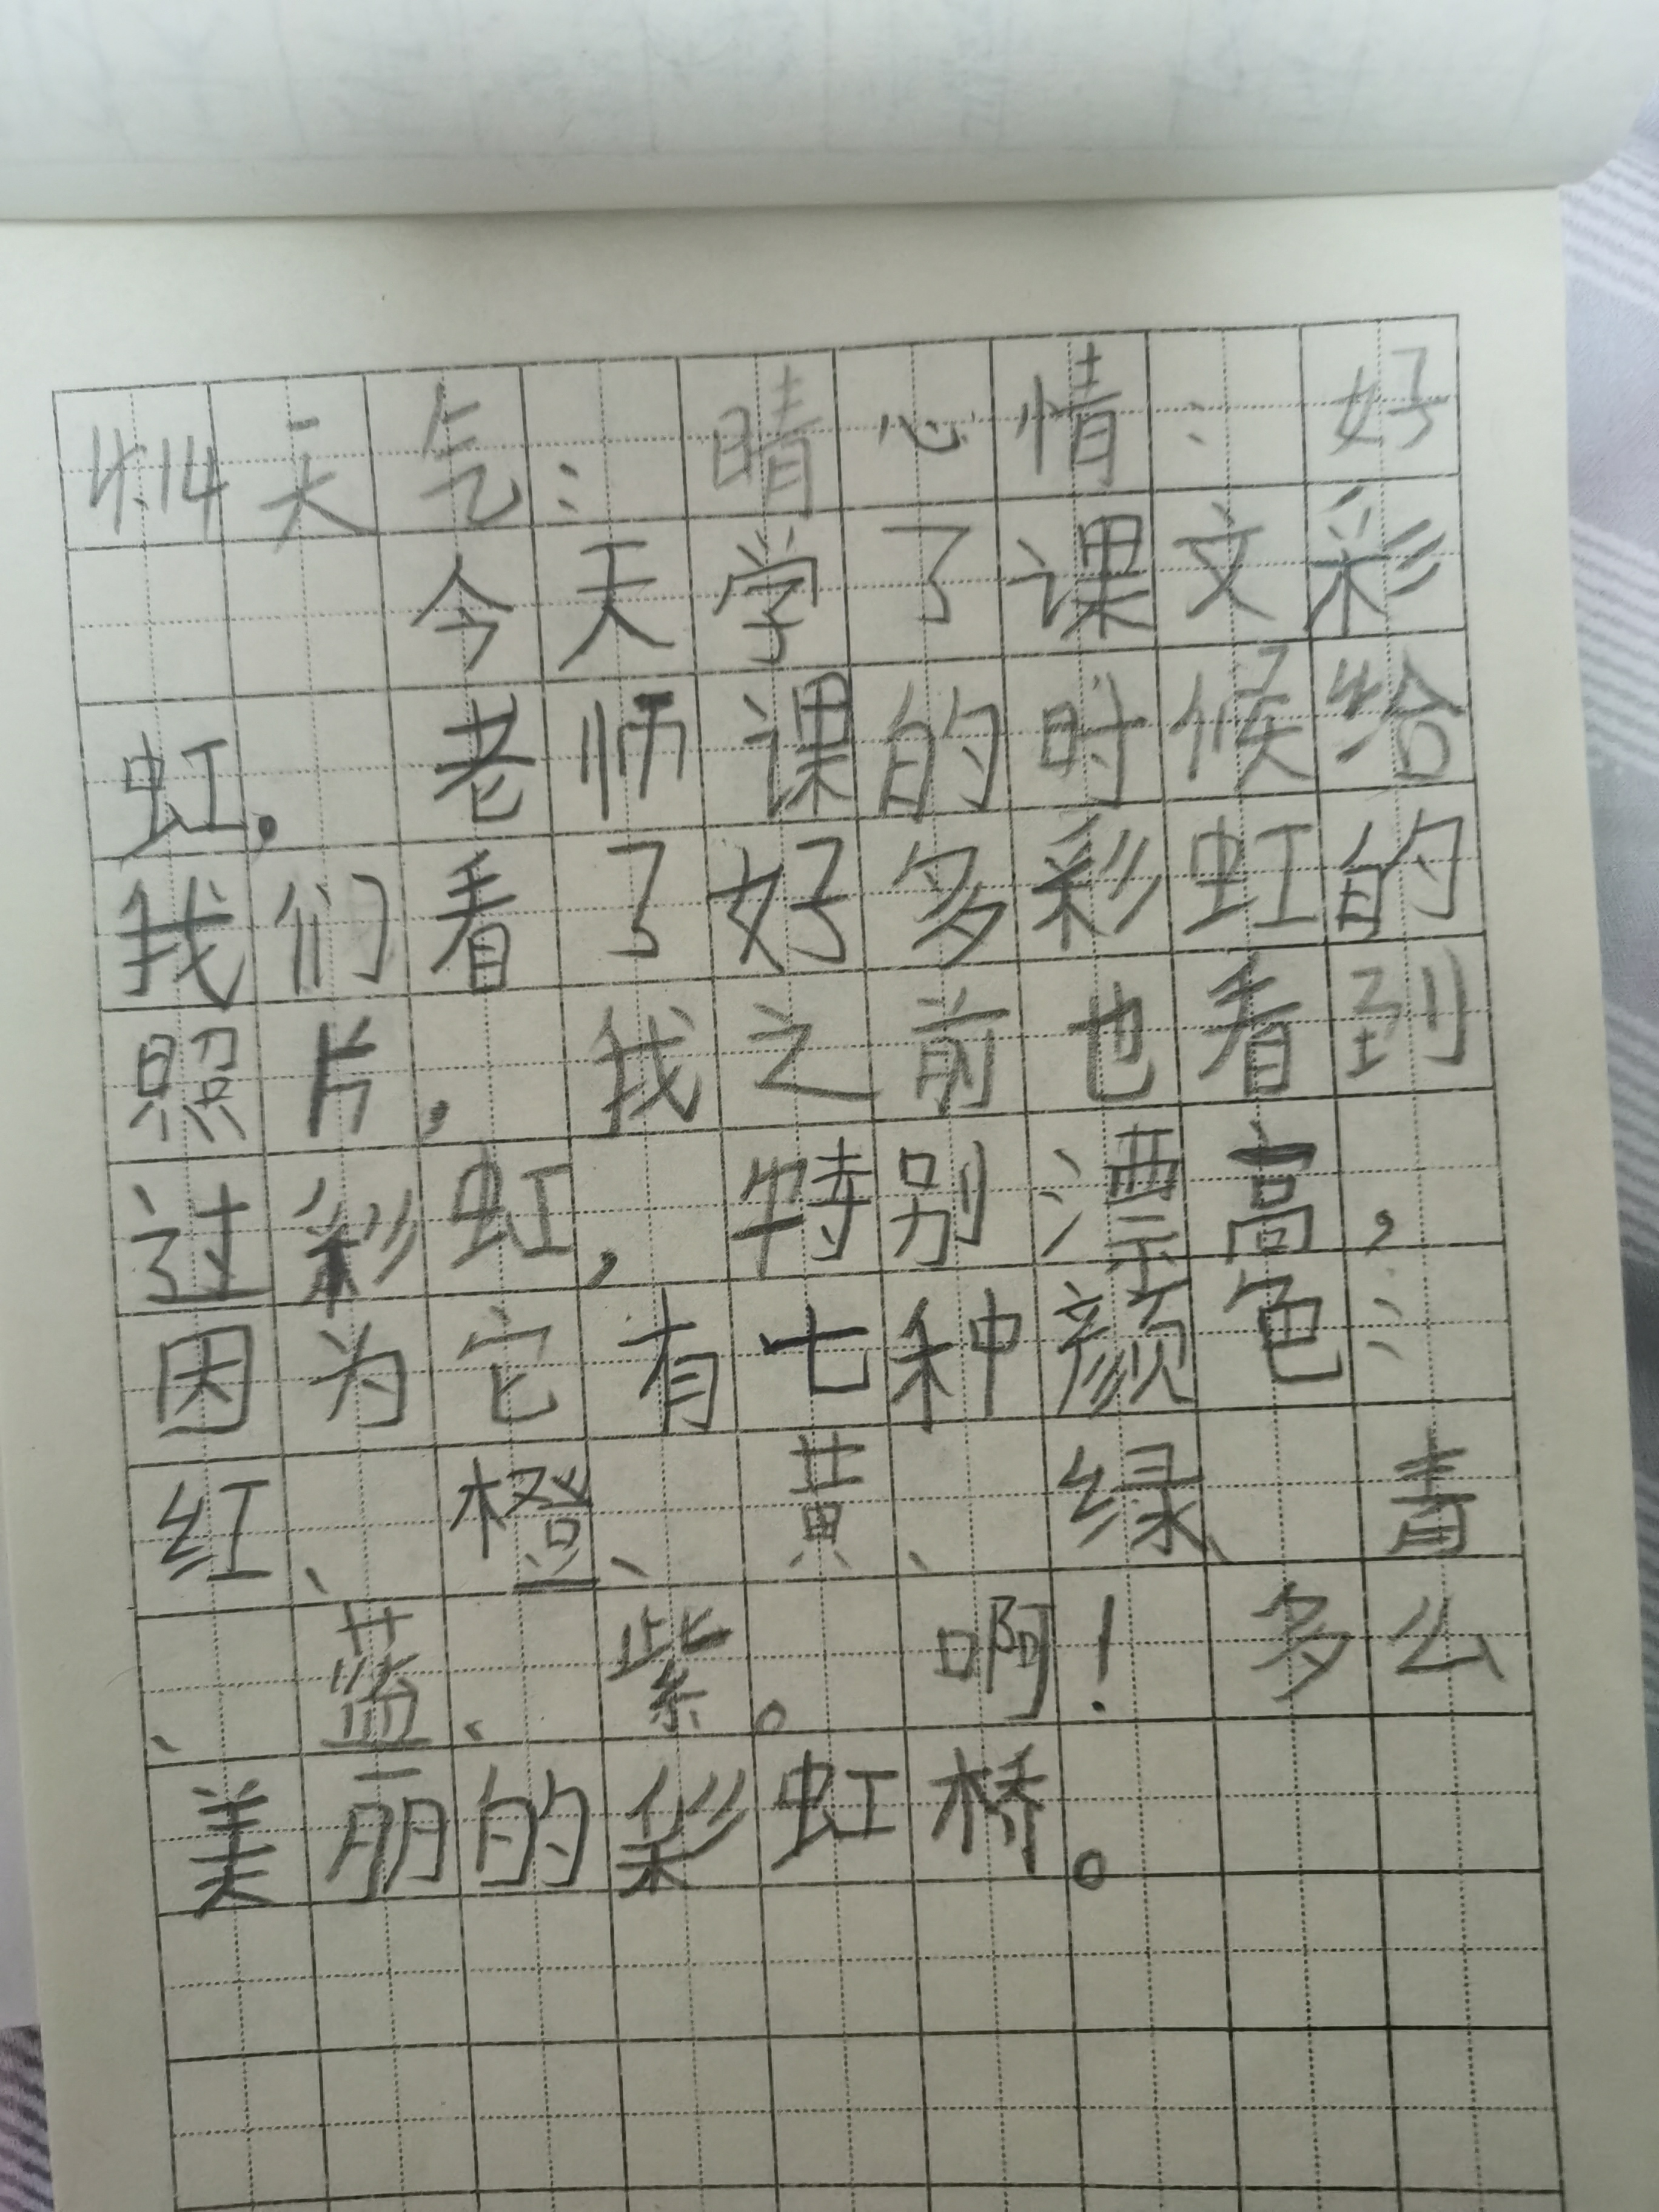 4.14天气：晴心情：好
今天学了课文彩
虹。老师课的时候给
我们看了好多彩虹的
照片，我之前也看到
过彩虹，特别漂高，
因为它有七种颜色：
红、橙、黄、绿、青
、蓝、紫。啊！多么
美丽的彩虹桥。